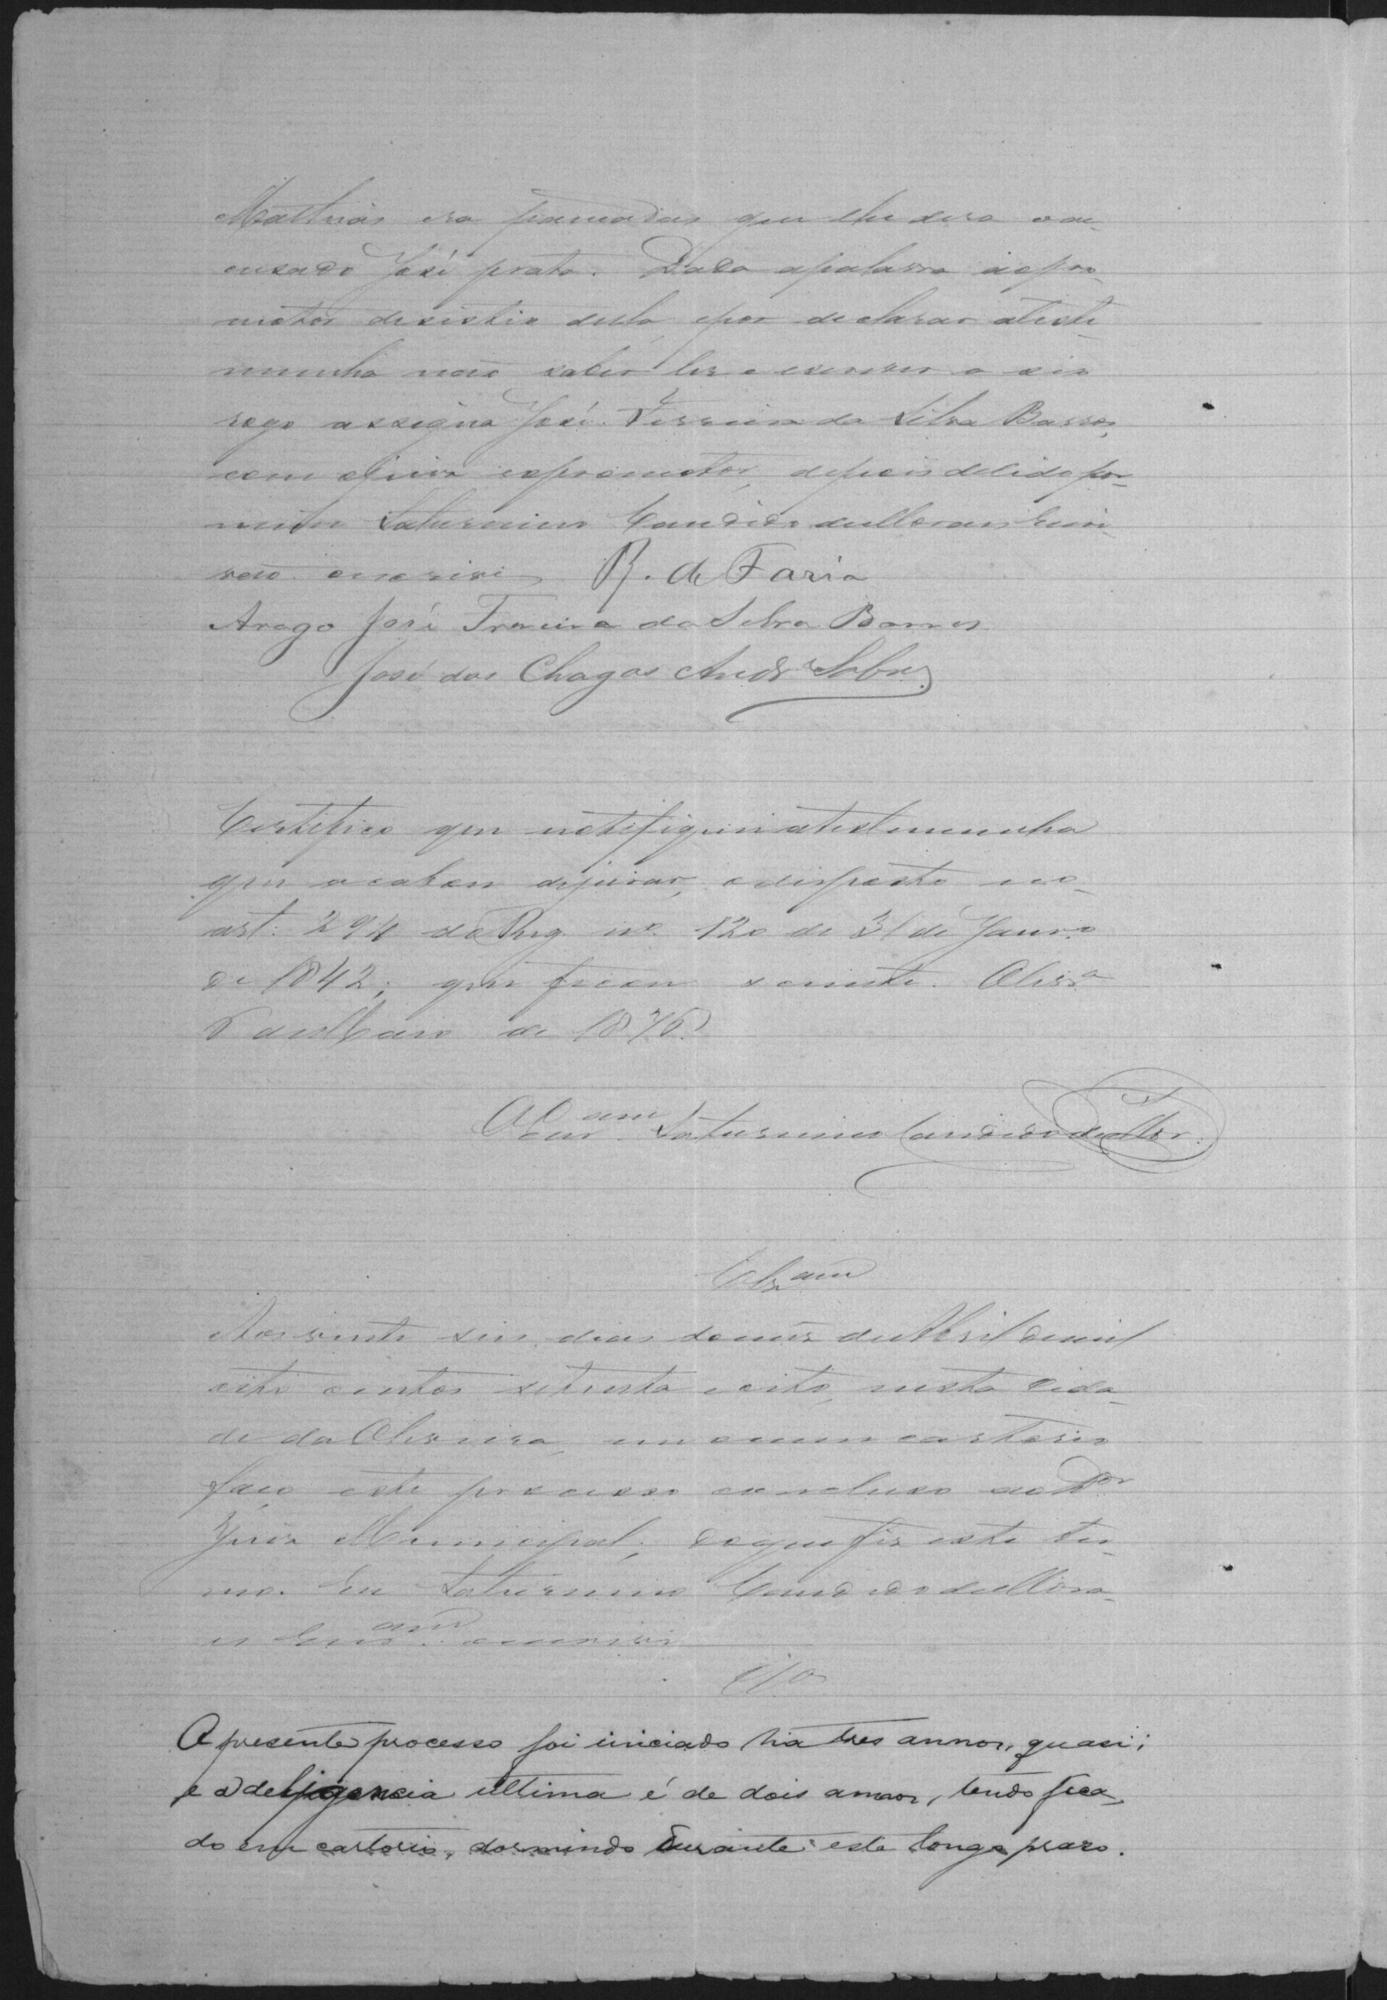 Mathias era pancadas que lhe dera o ac-
cusado José prata. Dada apalavra aopro-
motor desistio della, epor declarar ateste-
munha não saber ler e escrever a seu
rogo assigna José Ferreira da Silva Barros,
com ojuiz eopromotor, depois delido por
mim Saturnino Candido deMoraes Escri-
vão oescrevi R. de Faria
Arogo José Ferreira da Silva Barros
José das Chagas Andr.e Sobr.o
Certifico que notifiquei atestemunha
que acabou dejurar, odisposto no
art. 294 do Reg. nº. 120 de 31 de Janr.o
de 1842; que ficou sciente. Olivr.a
deMaio de 1876.
O Escr.am Saturnino Candido deMor.
Clz.am
Aos vinte seis dias domez deAbril demil
oito centos setenta eoito, nesta Cida-
de da Oliveira, em meu cartorio
faço este processo concluso aoD.or
Juiz Municipal; doque fiz este ter-
mo. Eu Saturnino Candido deMora-
es Escr.am oescrevi
O presente processo foi iniciado ha tres annos, quasi;
e a deligencia ultima é de dois annos, tendo fica-
do em cartorio, dormindo durante este longo praso.